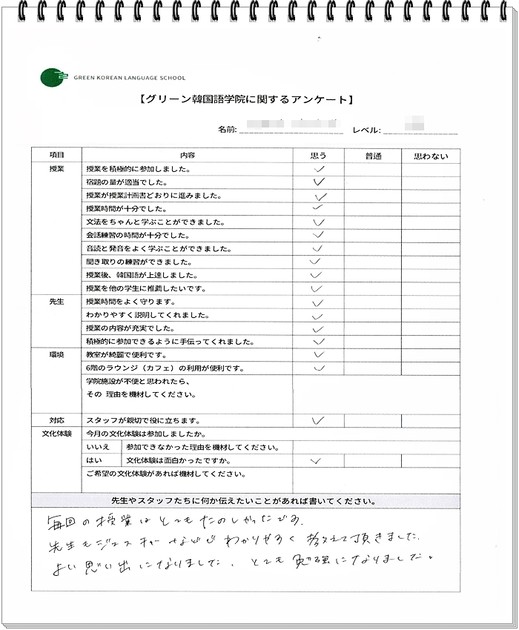 GREEN KOREAN LANGUAGE SCHOOL
【グリーン韓国語学院に関するアンケート】
名前: レベル:
項目 内容 思う 普通 思わない
授業 授業を積極的に参加しました。
宿題の量が適当でした。
授業が授業計画書どおりに進みました。
授業時間が十分でした。
文法をちゃんと学ぶことができました。
会話練習の時間が十分でした。
音読と発音をよく学ぶことができました。
聞き取りの練習ができました。
授業後、韓国語が上達しました。
授業を他の学生に推薦したいです。
先生 授業時間をよく守ります。
わかりやすく説明してくれました。
授業の内容が充実でした。
積極的に参加できるように手伝ってくれました。
環境 教室が綺麗で便利です。
6階のラウンジ（カフェ）の利用が便利です。
学院施設が不便と思われたら、
その 理由を機材してください。
対応 スタッフが親切で役に立ちます。
文化体験 今月の文化体験は参加しましたか。
いいえ 参加できなかった理由を機材してください。
はい 文化体験は面白かったですか。
ご希望の文化体験があれば機材してください。
先生やスタッフたちに何か伝えたいことがあれば書いてください。
毎回の授業はとてもたのしかったです。
先生もわかりやすく教えて頂きました。
よい思い出になりました。とても勉強になりました。